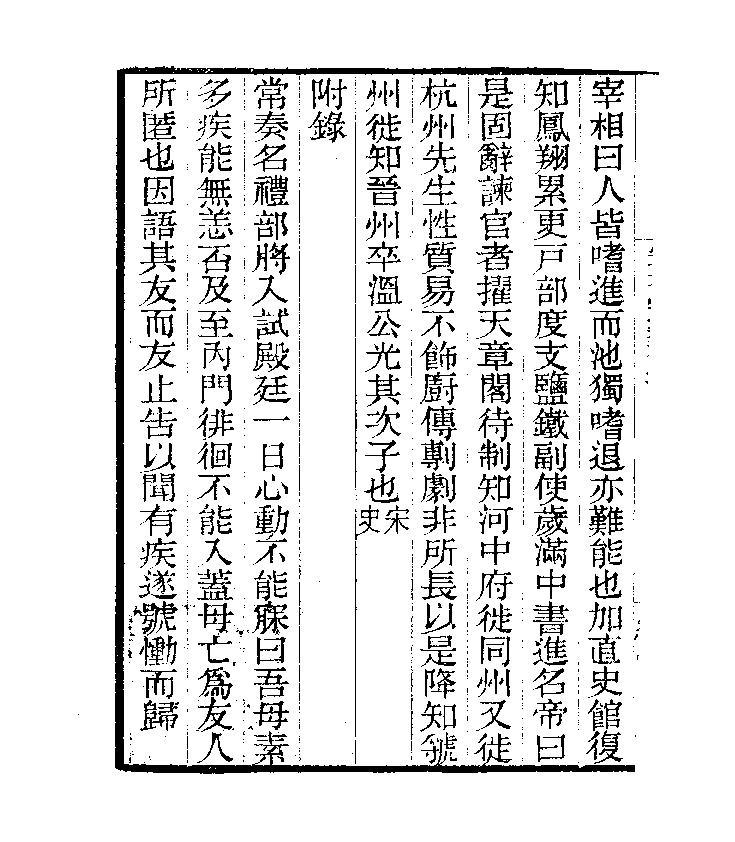 宰相曰人皆嗜進而池獨嗜退亦難能也加直史館復
知鳳翔累更戸部度支鹽鐵副使歲滿中書進名帝曰
是固辭諫官者擢天章閣待制知河中府徙同州又徙
杭州先生性質易不飾廚傳剸劇非所長以是降知虢
州徙知晉州卒溫公光其次子也宋史
附錄
常奏名禮部將入試殿廷一日心動不能寐曰吾母素
多疾能無恙否及至內門徘徊不能入蓋母亡爲友人
所匿也因語其友而友止告以聞有疾遂號慟而歸